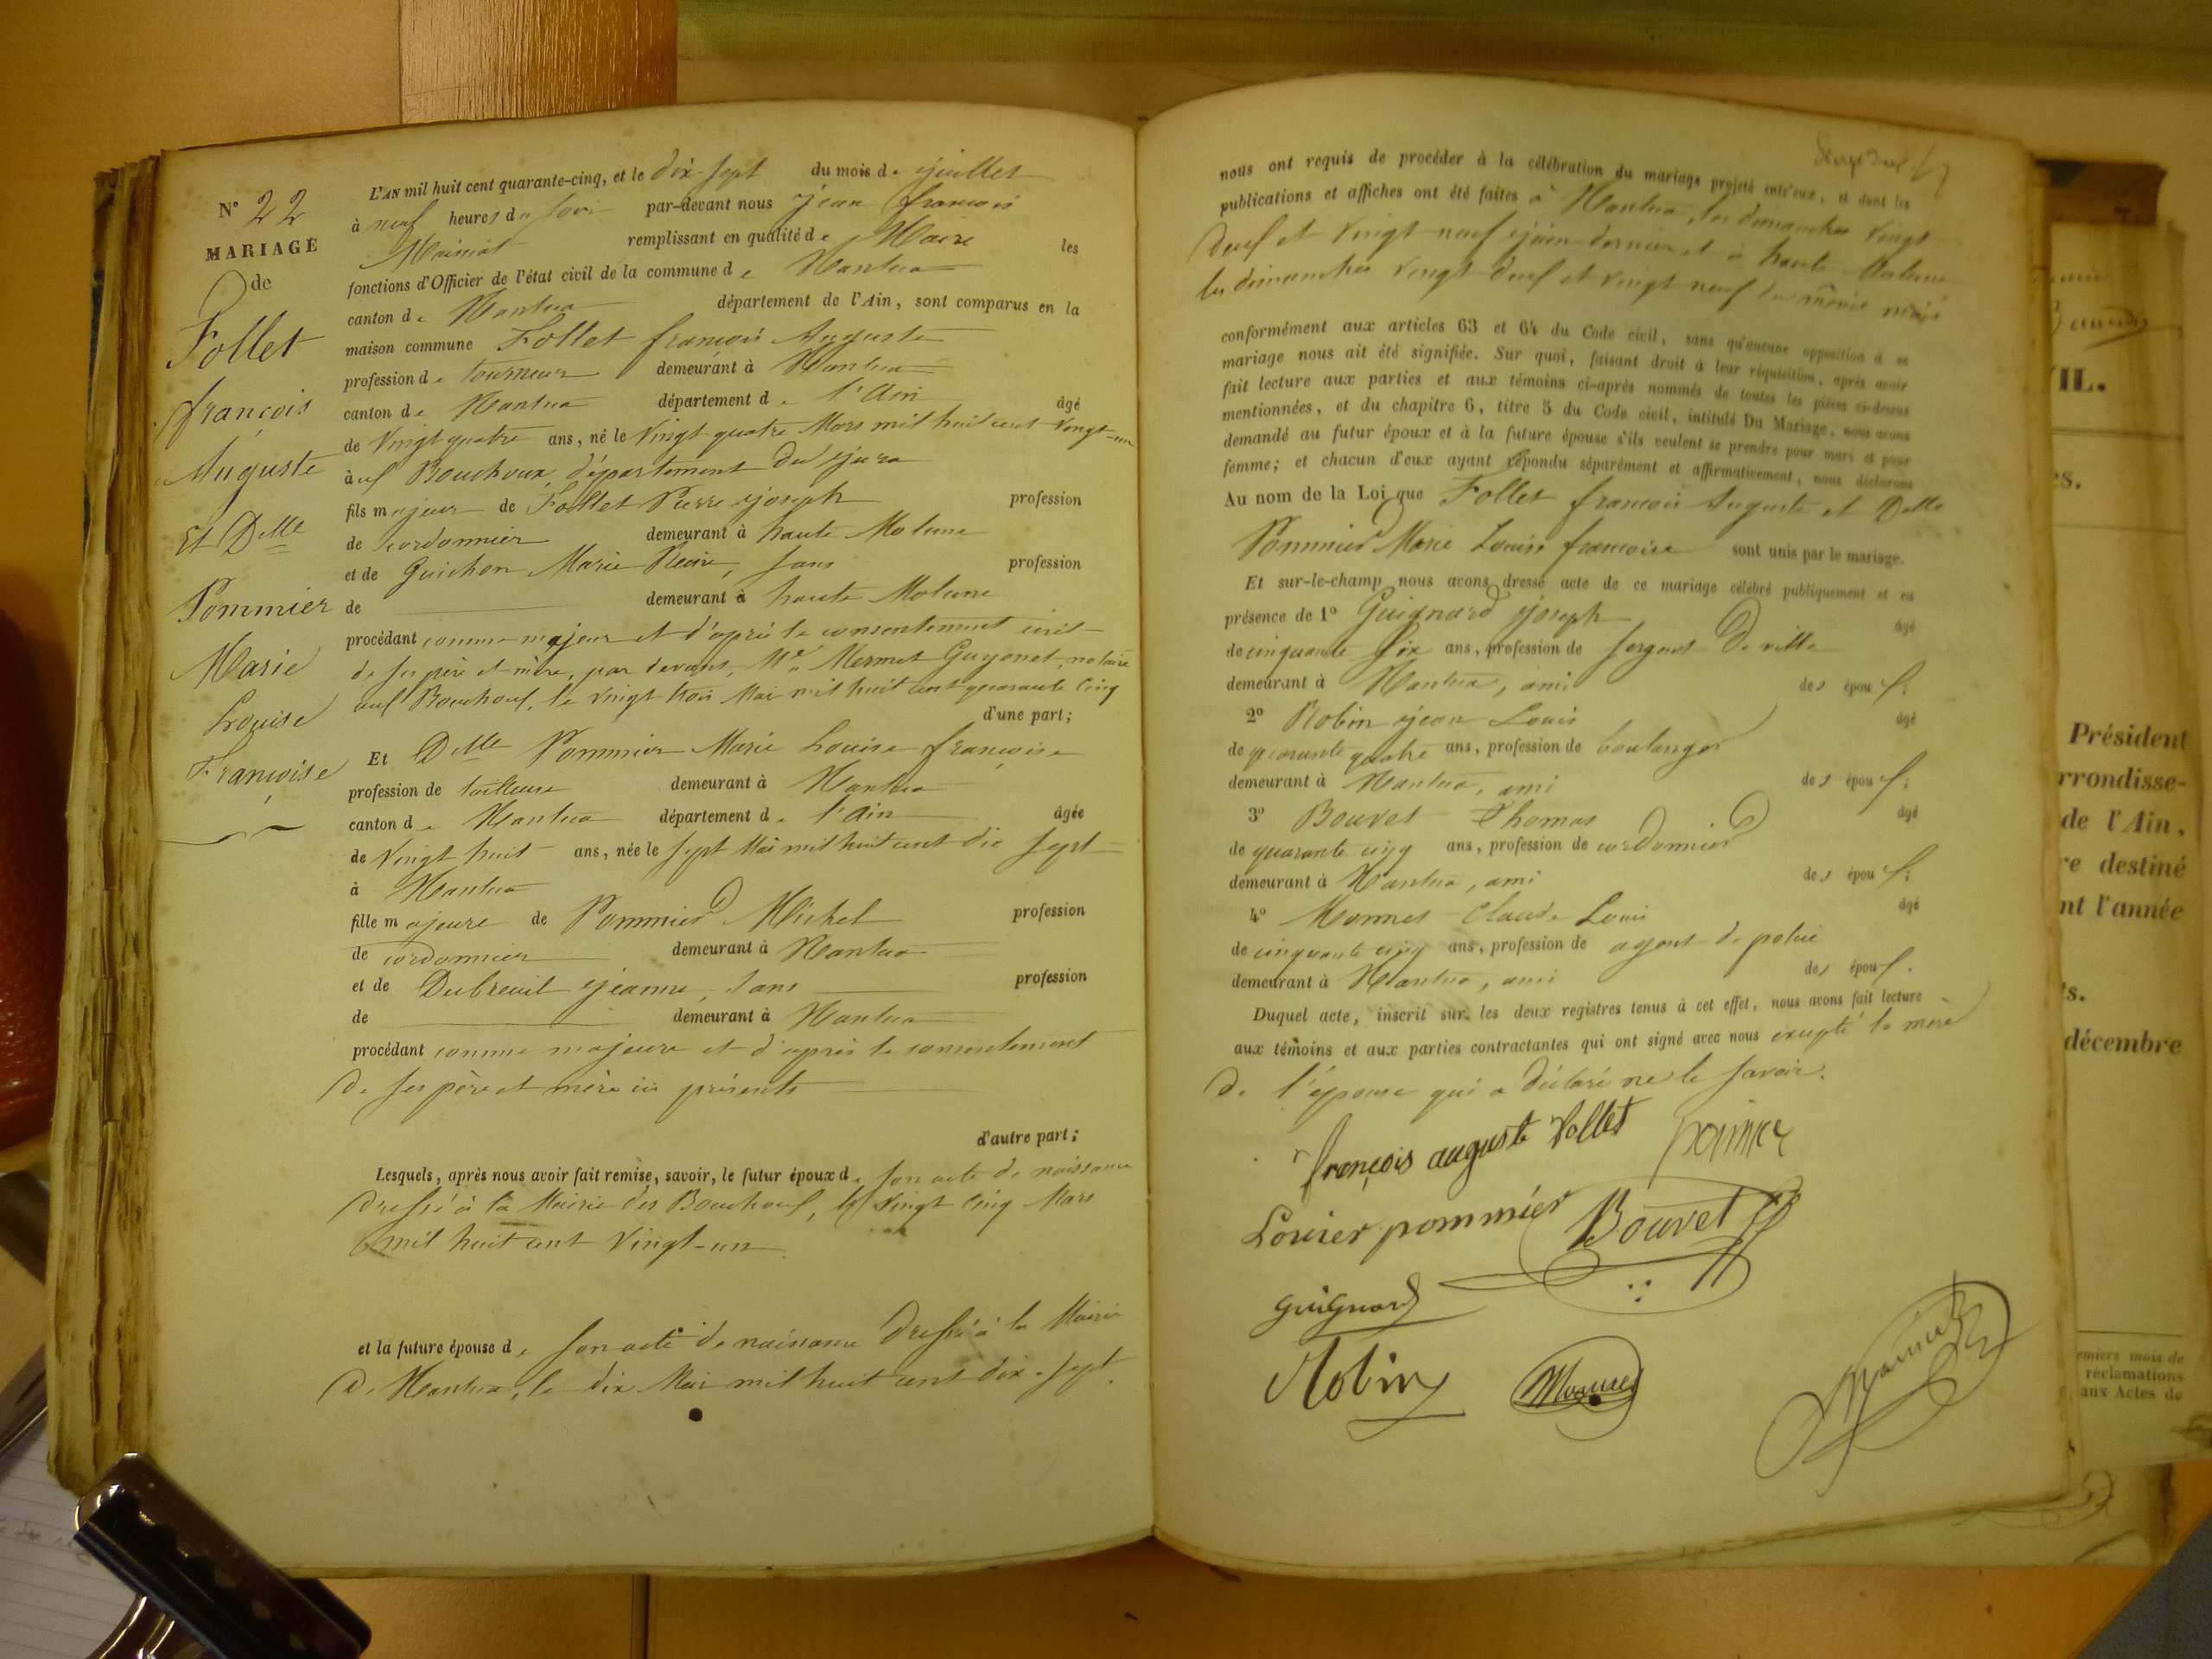 N° 22
MARIAGE
de
Follet
françois
Auguste
Et Delle
Pommier
Marie
Louise
Françoise
L'AN mil huit cent quarante-cinq, et le dix-sept du mois de juillet
à neuf heures du soir par-devant nous jean françois
remplissant en qualité de Maire les
fonctions d'Officier de l'état civil de la commune de Nantua
canton de Nantua département de l'Ain, sont comparus en la
maison commune Follet françois Auguste
profession de tourneur demeurant à Nantua
canton de Nantua département de l'Ain âgé
de vingt quatre ans, né le vingt quatre Mars mil huit cent vingt-un
aux Bouchoux, département du jura
fils majeur de Follet Pierre joseph profession
de cordonnier demeurant à haute Molune
et de Guichon Marie Reine, sans profession
de demeurant à haute Molune
procédant comme majeur et d'après le consentement
de ses père et mère, par devant Me Mermet Guyenet, notaire
aux Bouchoux, le vingt trois Mai mil huit cent quarante cinq
d'une part;
Et Delle Pommier Marie Louise françoise
profession de tailleuse demeurant à Nantua
canton de Nantua département de l'Ain âgée
de vingt huit ans, née le sept Mai mil huit cent dix sept
à Nantua
fille majeure de Pommier Michel profession
de cordonnier demeurant à Nantua
et de Dubreuil jeanne, sans profession
de demeurant à Nantua
procédant comme majeure et d'après le consentement
de ses père et mère ici présents
d'autre part;
Lesquels, après nous avoir fait remise, savoir, le futur époux de son acte de naissance
dressé à la Mairie des Bouchoux, le vingt cinq Mars
mil huit cent vingt-un
et la future épouse de son acte de naissance dressé à la Mairie
de Nantua, le dix Mai mil huit cent dix-sept.
nous ont requis de procéder à la célébration du mariage projeté entr'eux, et dont les
publications et affiches ont été faites à Nantua, les dimanches vingt
deux et vingt-neuf juin dernier et à haute Molune
les dimanches vingt deux et vingt neuf du même mois
conformément aux articles 63 et 64 du Code civil, sans qu'aucune opposition à ce
mariage nous ait été signifiée. Sur quoi, faisant droit à leur réquisition, après avoir
fait lecture aux parties et aux témoins ci-après nommés de toutes les pièces ci-dessus
mentionnées, et du chapitre 6, titre 5 du Code civil, intitulé Du Mariage, nous avons
demandé au futur époux et à la future épouse s'ils veulent se prendre pour mari et pour
femme; et chacun d'eux ayant répondu séparément et affirmativement, nous déclarons
Au nom de la Loi que Follet françois Auguste et Delle
Pommier Marie Louise françoise sont unis par le mariage.
Et sur-le-champ nous avons dressé acte de ce mariage célébré publiquement et en
présence de 1° Guignard joseph âgé
de cinquante six ans, profession de sergent de ville
demeurant à Nantua, ami des époux;
2° Robin jean Louis âgé
de quarante quatre ans, profession de boulanger
demeurant à Nantua, ami des époux;
3° Bouvet Thomas âgé
de quarante cinq ans, profession de cordonnier
demeurant à Nantua, ami des époux;
4° Claude Louis âgé
de cinquante cinq ans, profession de agent de police
demeurant à Nantua, ami des époux.
Duquel acte, inscrit sur les deux registres tenus à cet effet, nous avons fait lecture
aux témoins et aux parties contractantes qui ont signé avec nous excepté la mère
de l'épouse qui a déclaré ne le savoir.
françois auguste Follet
Louise pommier Bouvet
guignard
Robin
Bandy
IL.
es.
Président
rrondisse-
de l'Ain,
re destiné
nt l'année
ts.
décembre
emiers mois de
réclamations
aux Actes de